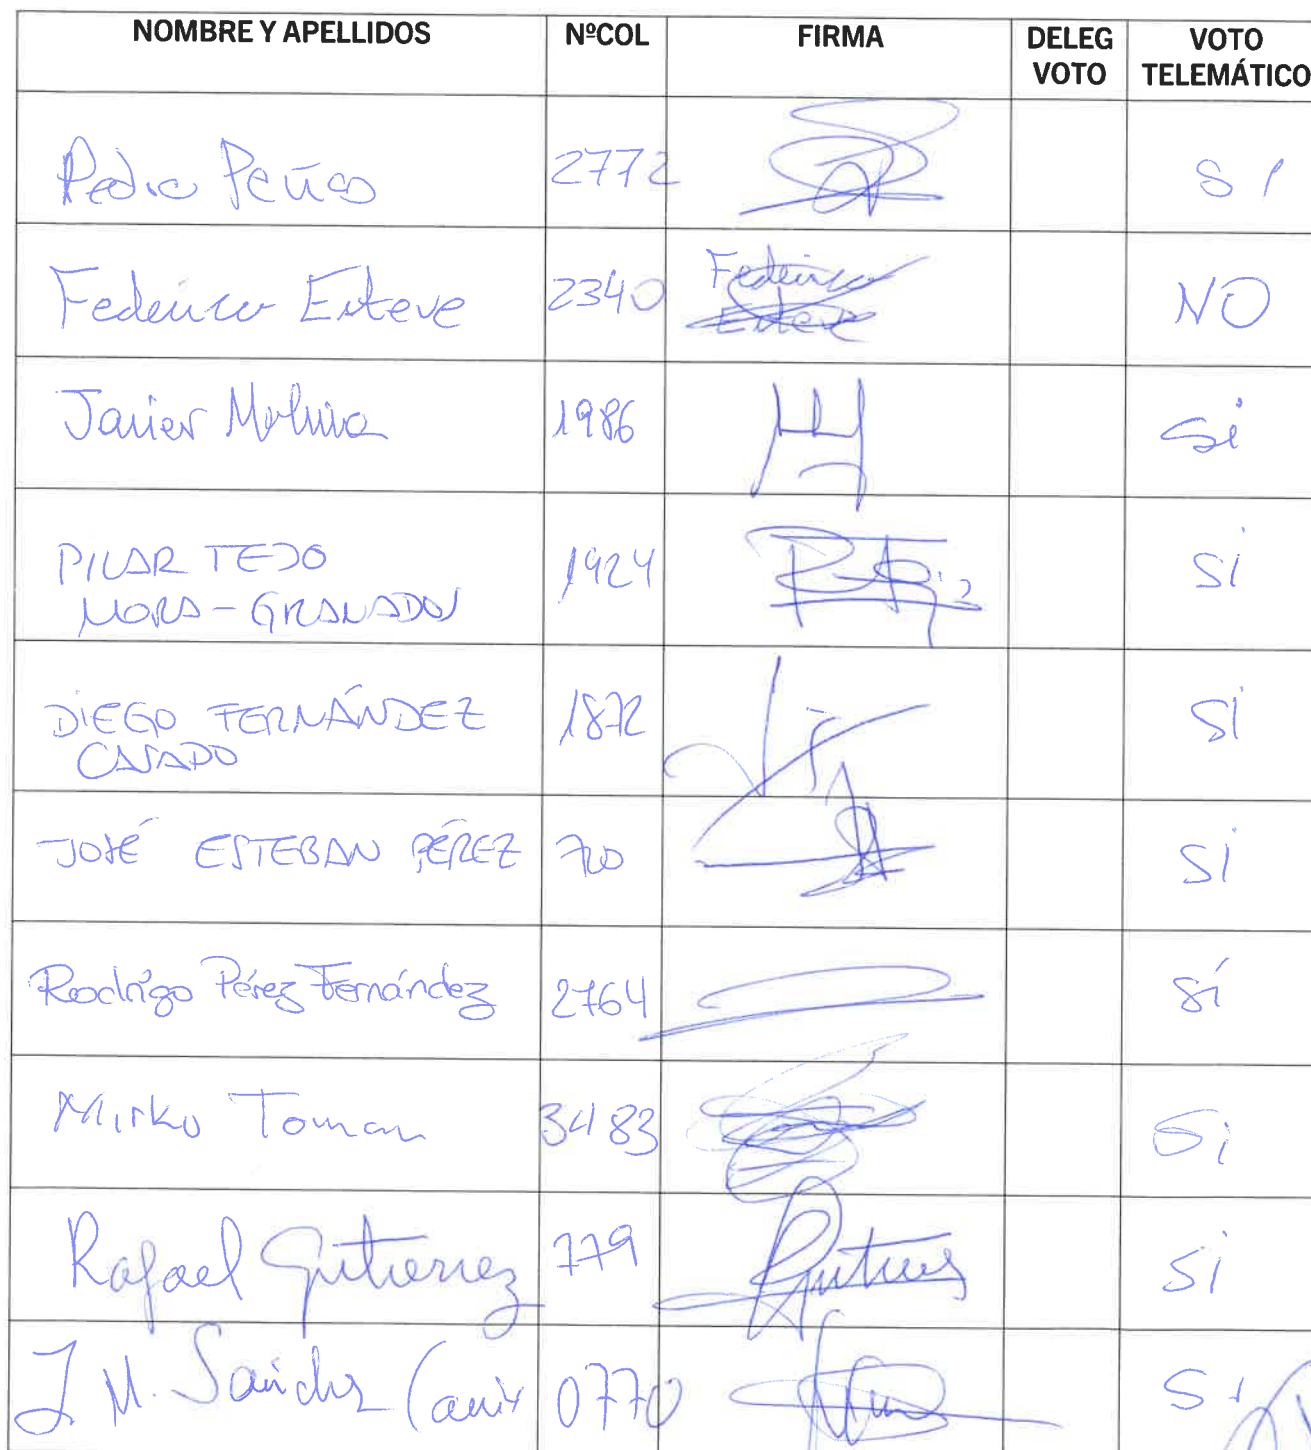 NOMBRE Y APELLIDOS NºCOL FIRMA DELEG VOTO VOTO TELEMÁTICO
Pedro Peñas 2772 SI
Federico Esteve 2340 Federico Esteve NO
Javier Molina 1986 Si
PILAR TEJO MORA-GRANADOS 1924 SI
DIEGO FERNÁNDEZ CASADO 1872 SI
JOSÉ ESTEBAN PÉREZ 720 SI
Rodrigo Pérez Fernández 2764 SÍ
Mirko Toman 3483 Si
Rafael Gutierrez 779 SI
J. M. Sánchez 0770 Si